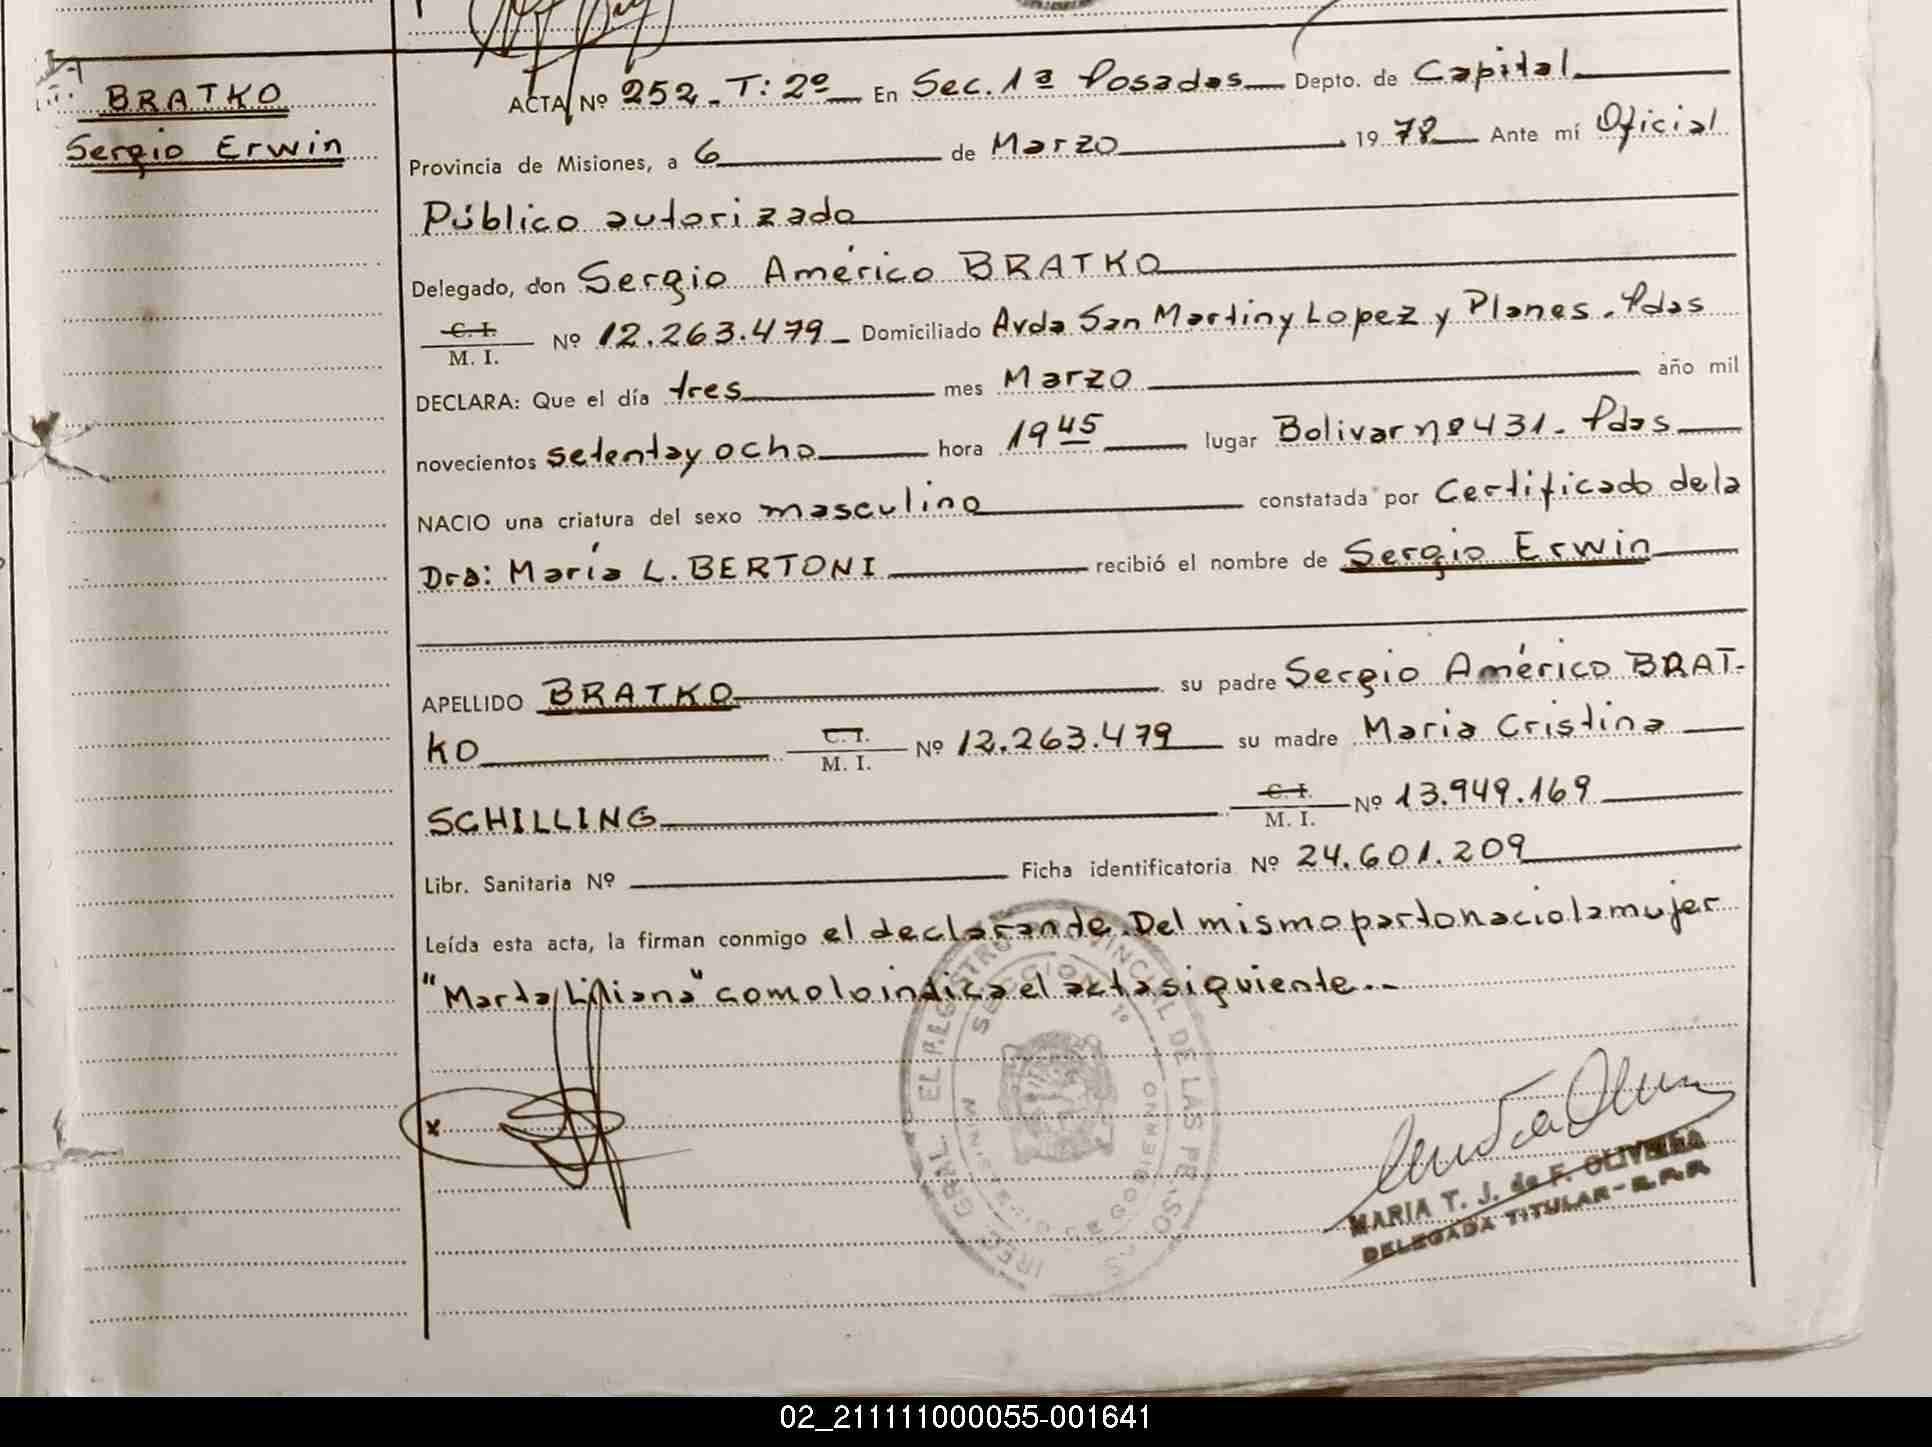 BRATKO
Sergio Erwin
ACTA Nº 252 - T: 2º En Sec. 1ª Posadas Depto. de Capital
Provincia de Misiones, a 6 de Marzo 1978 Ante mí Oficial
Público autorizado
Delegado, don Sergio Américo BRATKO
C. I.
M. I. Nº 12.263.479 Domiciliado Avda San Martin y Lopez y Planes. Pdas
DECLARA: Que el día tres mes Marzo año mil
novecientos setenta y ocho hora 19 45 lugar Bolivar nº 431 - Pdas
NACIO una criatura del sexo masculino constatada por Certificado de la
Dra: María L. BERTONI recibió el nombre de Sergio Erwin
APELLIDO BRATKO su padre Sergio Américo BRAT-
KO C. I. M. I. Nº 12.263.479 su madre Maria Cristina
SCHILLING C. I. M. I. Nº 13.949.169
Libr. Sanitaria Nº Ficha identificatoria Nº 24.601.209
Leída esta acta, la firman conmigo el declarante. Del mismo parto nacio la mujer
"Marta Liliana" como lo indica el acta siguiente. -
x
SECCION 1º
MINISTERIO DE GOBIERNO
MARIA T. J. de F. OLIVEIRA
DELEGADA TITULAR - R.P.P.
02_211111000055-001641